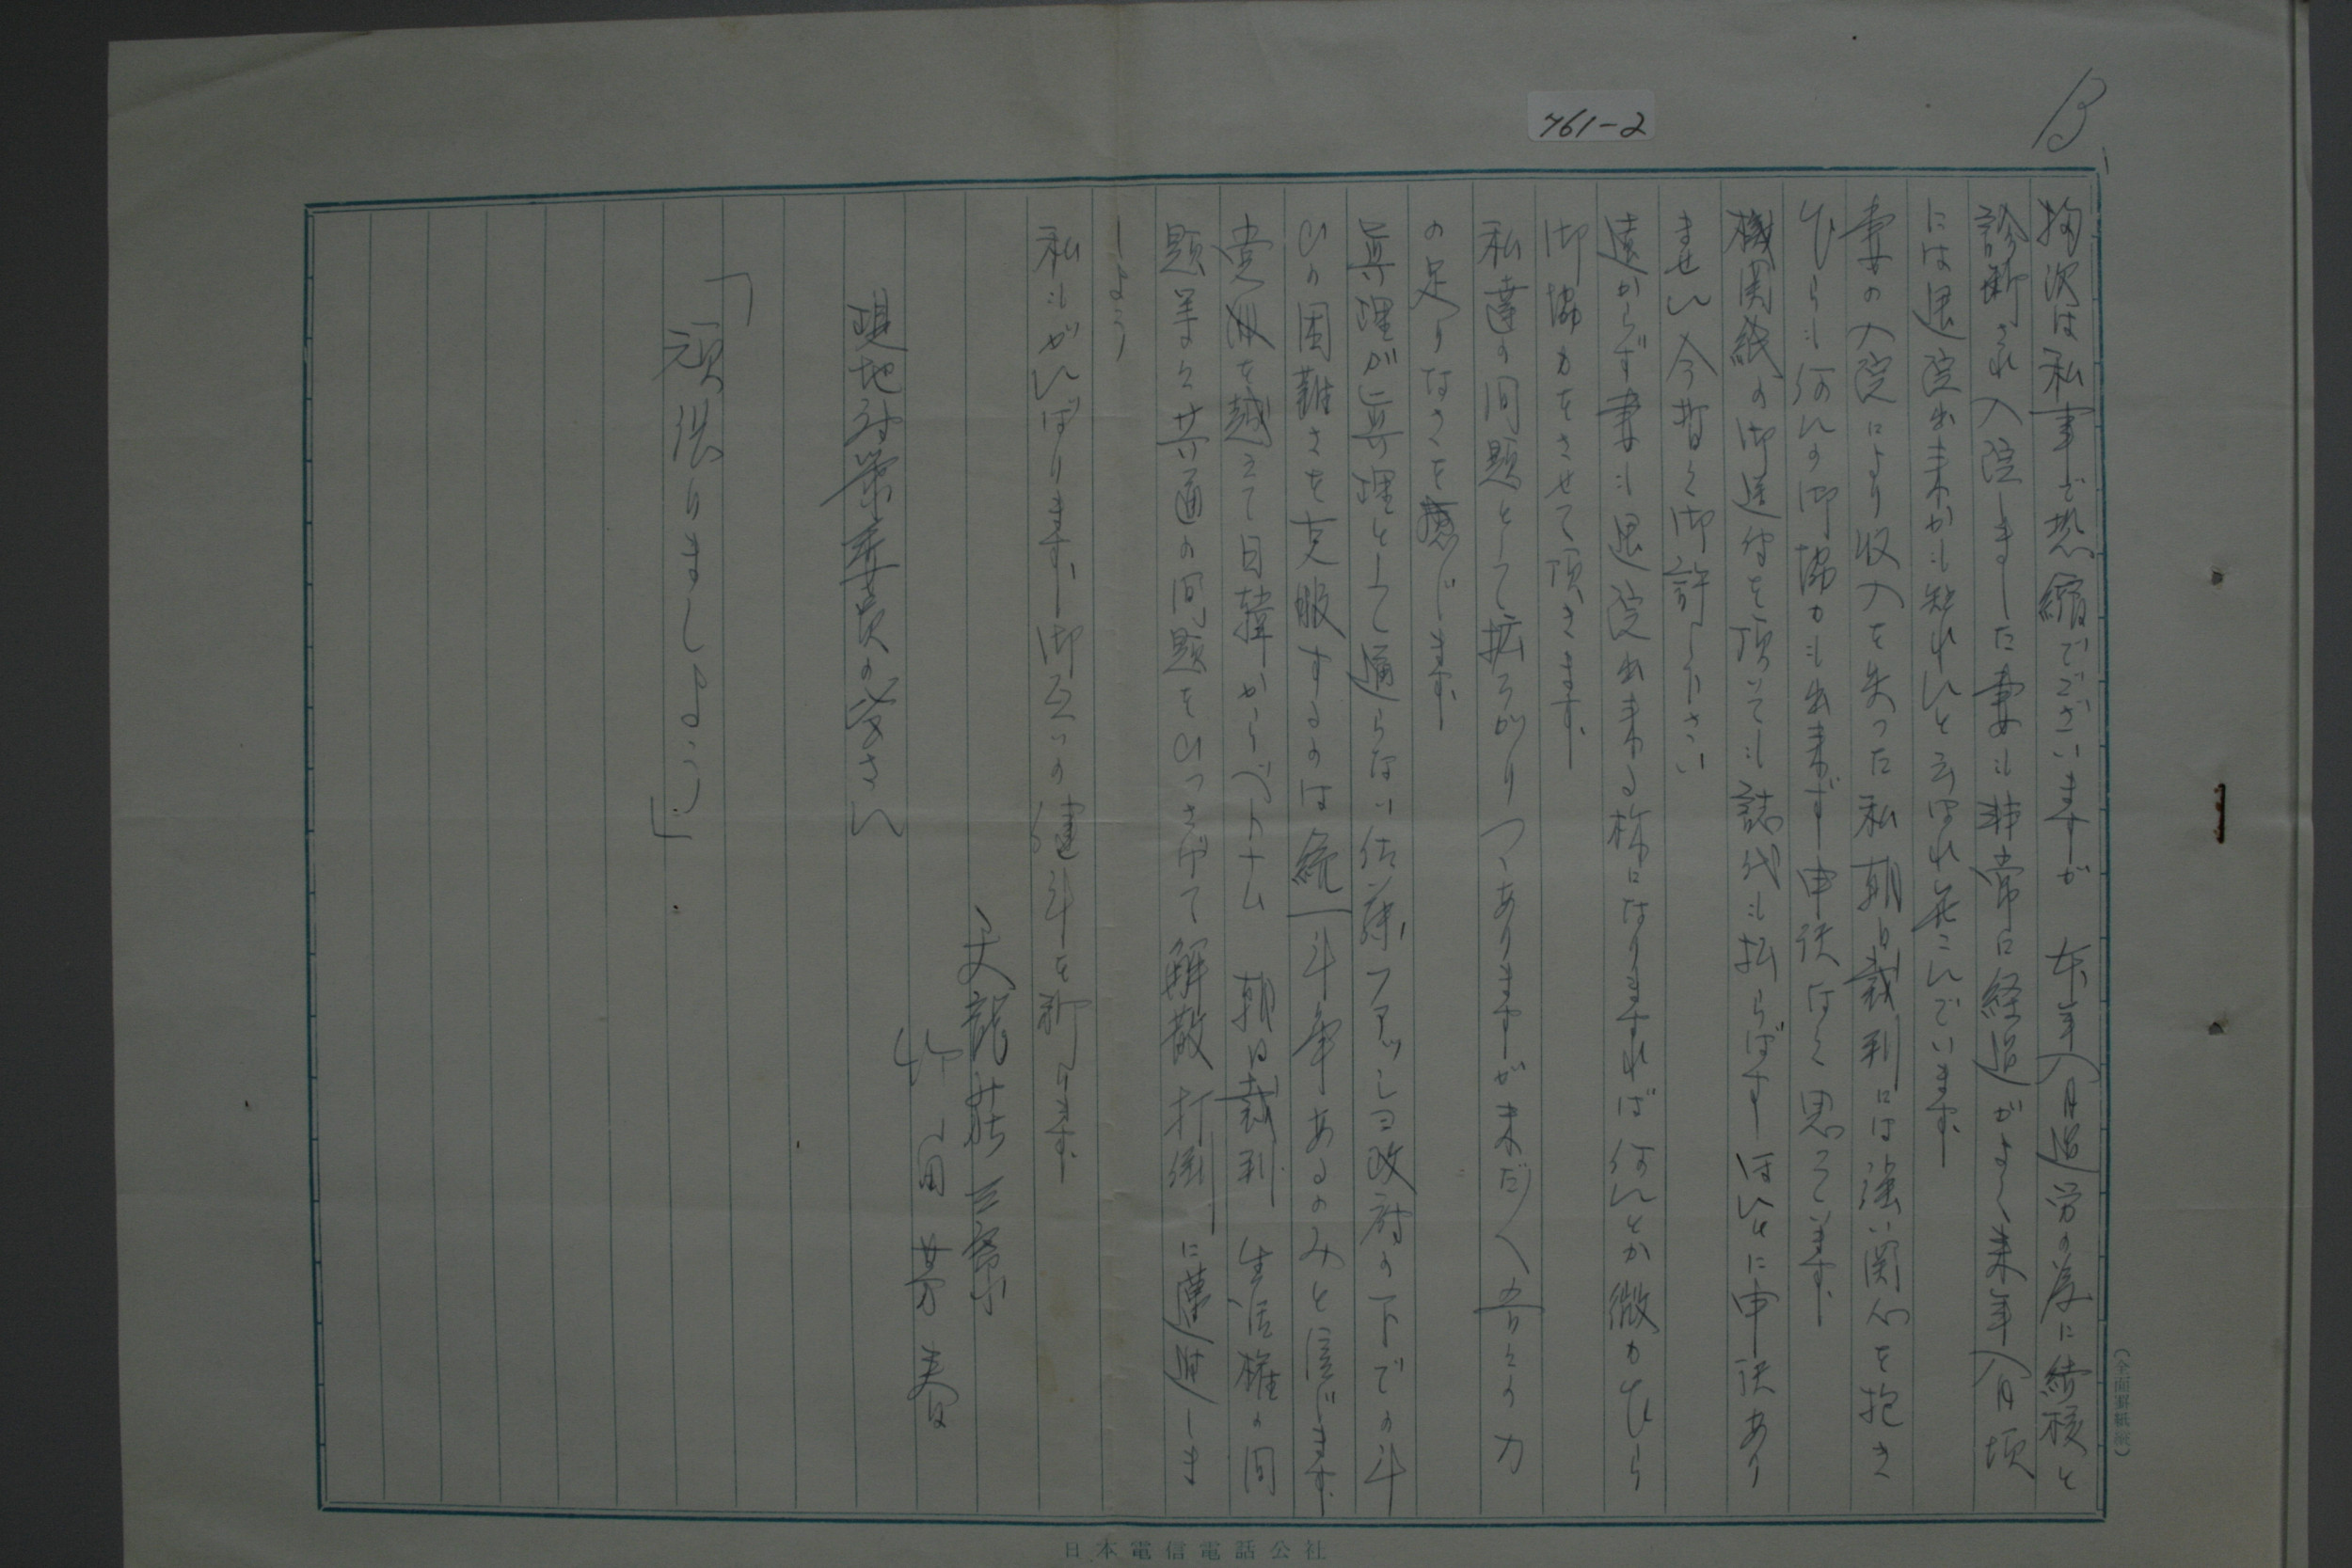 B
761-2
拘次は私事で恐縮でございますが 本年八月過労の為に結核と
診断され入院しました妻も非常に経過がよく来年八月頃
には退院出来かも知れんと云はれ喜こんでいます
妻の入院により収入を失った私 朝日裁判には強い関心を抱き
ながらも何んの御協力も出来ず申訳なく思っています
機関紙の御送付を頂いても誌代も払らはず ほんとに申訳あり
ません 今暫く御許し下さい
遠からず妻も退院出来る様になりますれば何んとか微力ながら
御協力をさせて頂きます
私達の問題として拡ろがりつゝありますが未だ 吾々の力
の足りなさを感じます
真理が真理として通らない佐藤ファッショ政府の下での斗
ひの困難さを克服するのは統一斗争あるのみと信じます
党派を越えて日韓からベトナム 朝日裁判 生活権の問
題等々共通の問題をひっさげて解散 打倒に邁進しま
しょう
私もがんばります 御互いの健斗を祈ります
天龍荘三寮
竹田芳春
現地対策委員の皆さん
「頑張りましょう」
(全面罫紙)
日本電信電話公社